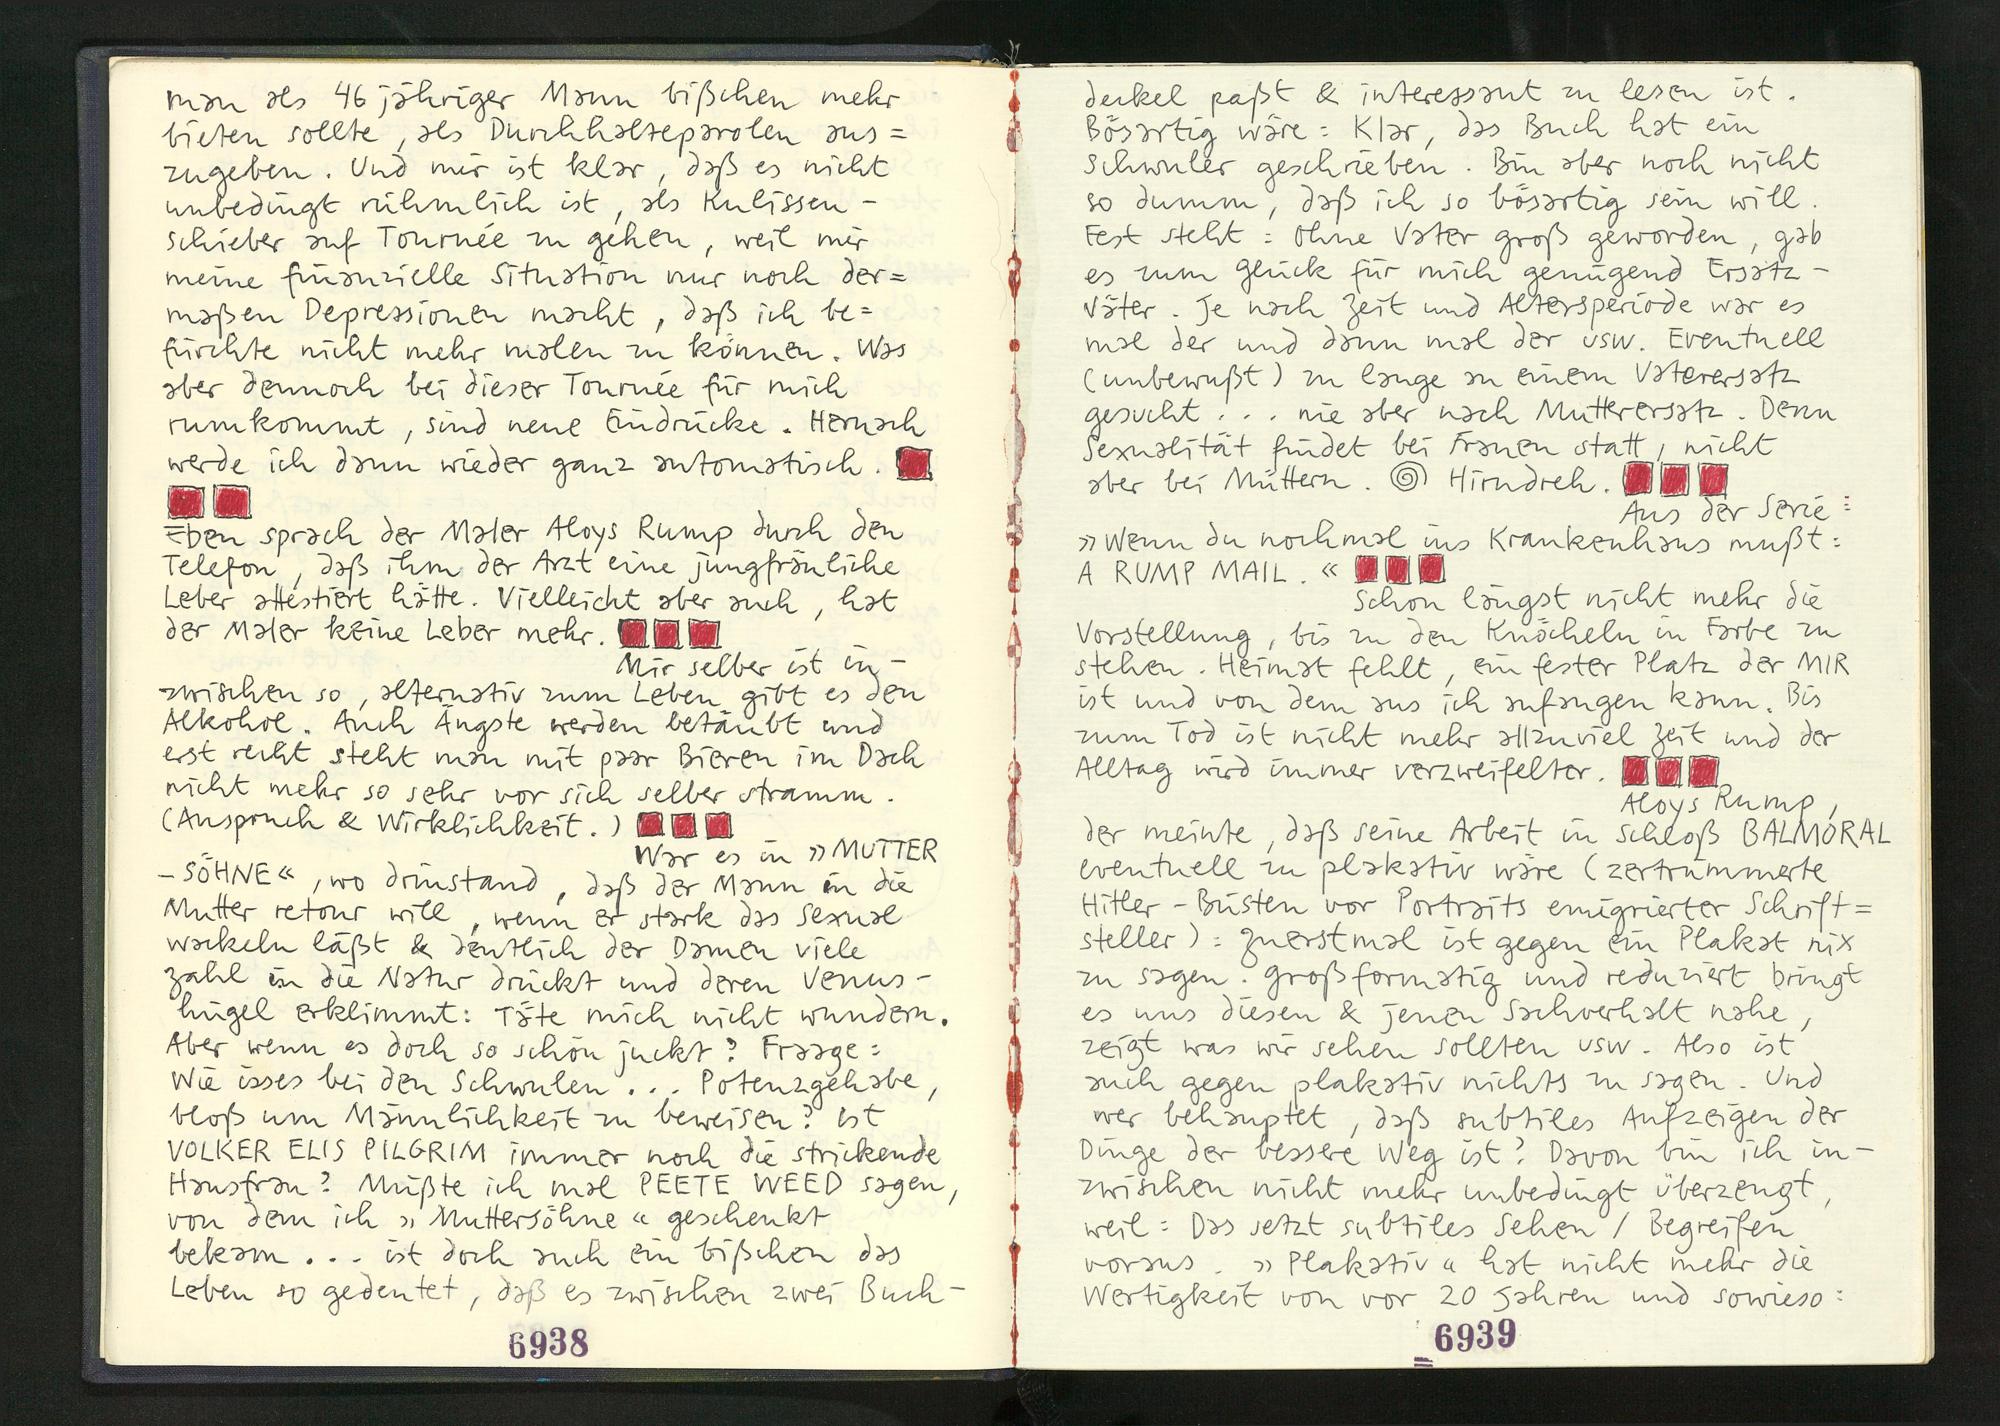 man als 46 jähriger Mann bißchen mehr
bieten sollte, als Durchhalteparolen aus=
zugeben. Und mir ist klar, daß es nicht
unbedingt rühmlich ist, als Kulissen-
schieber auf Tournée zu gehen, weil mir
meine finanzielle Situation nur noch der=
maßen Depressionen macht, daß ich be=
fürchte nicht mehr malen zu können. Was
aber dennoch bei dieser Tournée für mich
rumkommt, sind neue Eindrücke. Hernach
werde ich dann wieder ganz automatisch.
Eben sprach der Maler Aloys Rump durch den
Telefon, daß ihm der Arzt eine jungfräuliche
Leber attestiert hätte. Vielleicht aber auch, hat
der Maler keine Leber mehr.
Mir selber ist in-
zwischen so, alternativ zum Leben gibt es den
Alkohol. Auch Ängste werden betäubt und
erst recht steht man mit paar Bieren im Dach
nicht mehr so sehr vor sich selber stramm.
(Anspruch & Wirklichkeit.)
War es in »MUTTER
-SÖHNE«, wo drinstand, daß der Mann in die
Mutter retour will, wenn er stark das Sexual
wackeln läßt & deutlich der Damen viele
zahl in die Natur drückt und deren Venus-
hügel erklimmt: Täte mich nicht wundern.
Aber wenn es doch so schön juckt? Fraage:
Wie isses bei den Schwulen... Potenzgehabe,
bloß um Männlichkeit zu beweisen? Ist
VOLKER ELIS PILGRIM immer noch die strickende
Hausfrau? Müßte ich mal PEETE WEED sagen,
von dem ich »Muttersöhne« geschenkt
bekam... ist doch auch ein bißchen das
Leben so gedeutet, daß es zwischen zwei Buch-
6938
deckel paßt & interessant zu lesen ist.
Bösartig wäre: Klar, das Buch hat ein
Schwuler geschrieben. Bin aber noch nicht
so dumm, daß ich so bösartig sein will.
Fest steht: Ohne Vater groß geworden, gab
es zum Glück für mich genügend Ersatz-
väter. Je nach Zeit und Altersperiode war es
mal der und dann mal der usw. Eventuell
(unbewußt) zu lange an einem Vaterersatz
gesucht... nie aber nach Mutterersatz. Denn
Sexualität findet bei Frauen statt, nicht
aber bei Müttern. Hirndreh.
Aus der Serie:
»Wenn du nochmal ins Krankenhaus mußt:
A RUMP MAIL.«
Schon längst nicht mehr die
Vorstellung, bis zu den Knöcheln in Farbe zu
stehen. Heimat fehlt, ein fester Platz der MIR
ist und von dem aus ich anfangen kann. Bis
zum Tod ist nicht mehr allzuviel Zeit und der
Alltag wird immer verzweifelter.
Aloys Rump,
der meinte, daß seine Arbeit in Schloß BALMORAL
eventuell zu plakativ wäre (zertrümmerte
Hitler-Büsten vor Portraits emigrierter Schrift=
steller): Zuerstmal ist gegen ein Plakat nix
zu sagen. Großformatig und reduziert bringt
es uns diesen & jenen Sachverhalt nahe,
zeigt was wir sehen sollten usw. Also ist
auch gegen plakativ nichts zu sagen. Und
wer behauptet, daß subtiles Aufzeigen der
Dinge der bessere Weg ist? Davon bin ich in-
zwischen nicht mehr unbedingt überzeugt,
weil: Das setzt subtiles Sehen / Begreifen
voraus. »Plakativ« hat nicht mehr die
Wertigkeit von vor 20 Jahren und sowieso:
6939